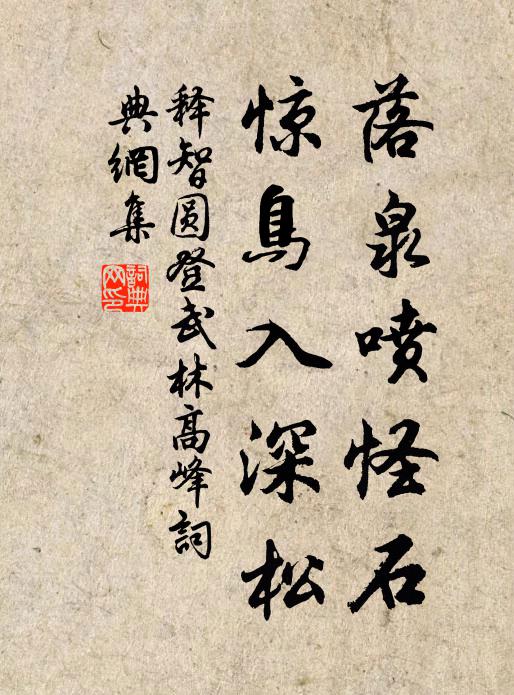 落泉喷怪石
惊鳥入深松
释智圆登武林高峰詞
典網集
詞典
网印